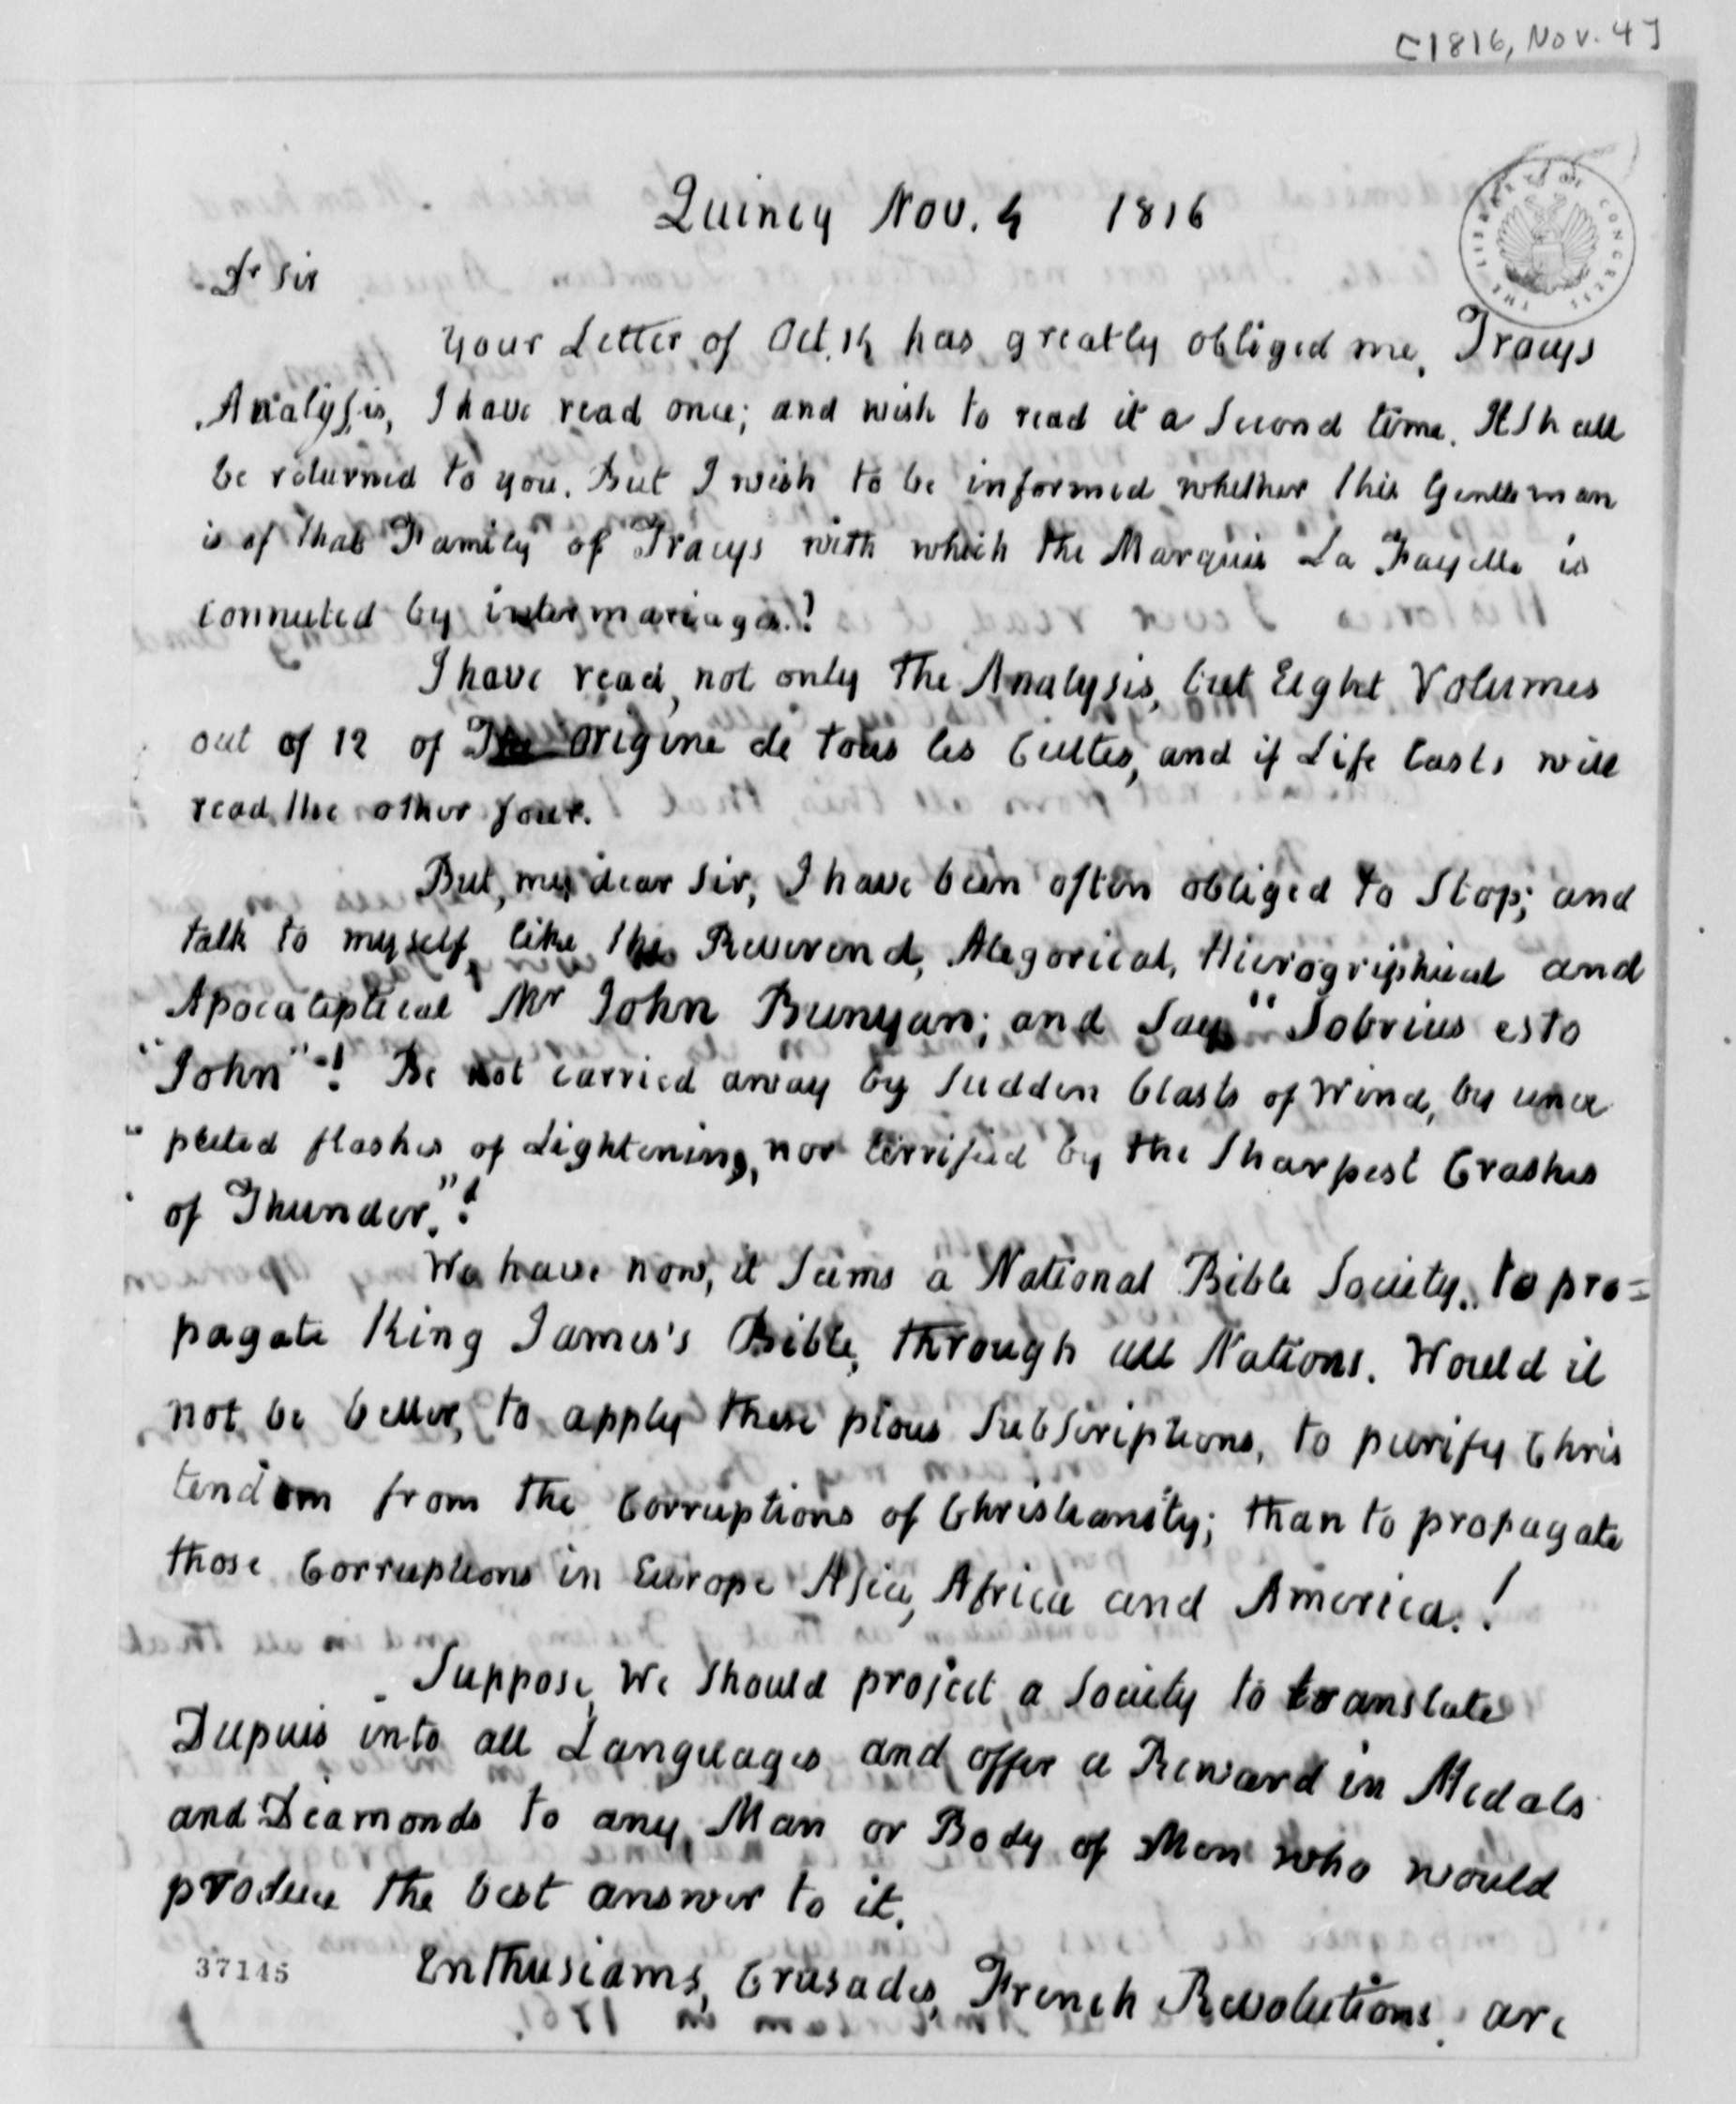 [1816, Nov. 4]
THE LIBRARY OF CONGRESS
Quincy Nov. 4 1816
Dr Sir
Your Letter of Oct. 14 has greatly obliged me. Tracys
Analysis, I have read once; and wish to read it a Second time. It Shall
be returned to you. But I wish to be informed whether this Gentleman
is of that Family of Tracys with which the Marquis La Fayette is
connected by intermariages.?
I have read, not only the Analysis, but Eight Volumes
out of 12 of The Origine de tous les Cultes, and if Life lasts will
read the other four.
But, my dear Sir, I have been often obliged to Stop; and
talk to myself like the Reverend, Alegorical, Hierogriphical and
Apocaliptical Mr John Bunyan; and Say "Sobrius esto
"John"! Be not carried away by Sudden blasts of Wind, by unex
" pected flashes of Lightening, nor terrified by the Sharpest Crashes
of Thunder."!
We have now, it Seems a National Bible Society, to pro=
pagate King James's Bible, through all Nations. Would it
not be better, to apply these pious Subscriptions, to purify Chris
tendom from the Corruptions of Christianity; than to propagate
those Corruptions in Europe Asia, Africa and America.!
Suppose, We Should project a Society to translate
Dupuis into all Languages and offer a Reward in Medals
and Diamonds to any Man or Body of Men who would
produce the best answer to it.
37145
Enthusiams, Crusades, French Revolutions are